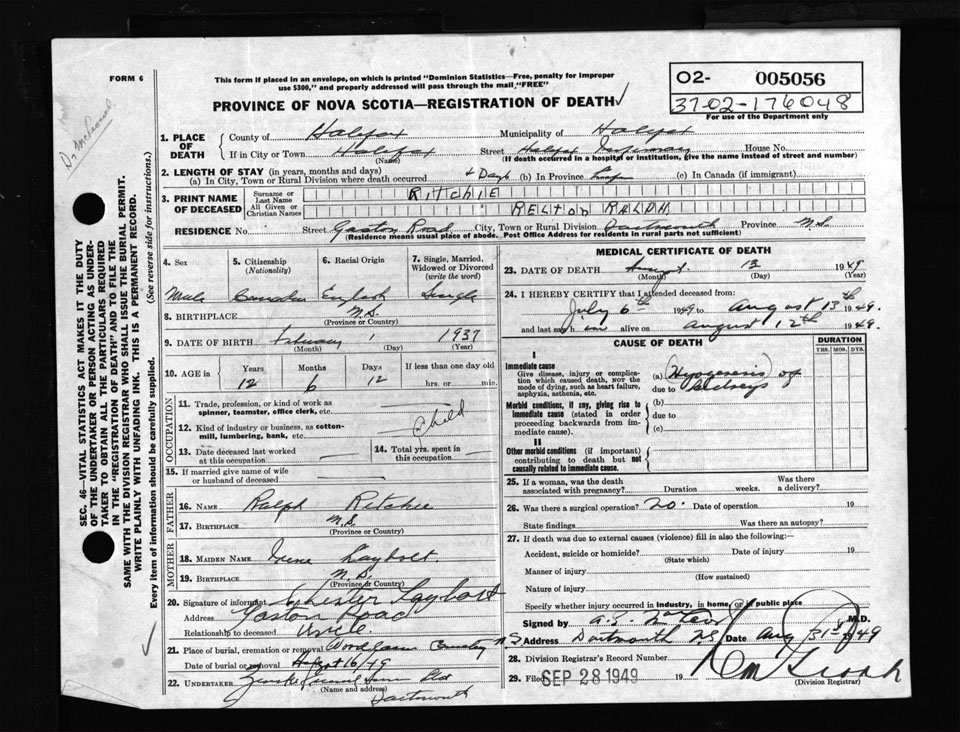 FORM 6
This form if placed in an envelope, on which is printed "Dominion Statistics—Free, penalty for improper
use $300," and properly addressed will pass through the mail "FREE"
O2- 005056
37-02-176048
For use of the Department only
PROVINCE OF NOVA SCOTIA—REGISTRATION OF DEATH
1. PLACE OF DEATH
County of Halifax Municipality of Halifax
If in City or Town Halifax Street Halifax Infirmary House No.
(Name) (If death occurred in a hospital or institution, give the name instead of street and number)
2. LENGTH OF STAY (in years, months and days)
(a) In City, Town or Rural Division where death occurred Days (b) In Province (c) In Canada (if immigrant)
3. PRINT NAME OF DECEASED
Surname or Last Name RITCHIE
All Given or Christian Names RELTON RALPH
RESIDENCE No. Street Gaston Road City, Town or Rural Division Dartmouth Province N.S.
(Residence means usual place of abode. Post Office Address for residents in rural parts not sufficient)
4. Sex 5. Citizenship (Nationality) 6. Racial Origin 7. Single, Married, Widowed or Divorced (write the word)
Male Canadian English Single
8. BIRTHPLACE N.S.
(Province or Country)
9. DATE OF BIRTH February 1 1937
(Month) (Day) (Year)
10. AGE in Years Months Days If less than one day old
12 6 12 hrs. or min.
OCCUPATION
11. Trade, profession, or kind of work as
spinner, teamster, office clerk, etc.
12. Kind of industry or business, as cotton-
mill, lumbering, bank, etc. Child
13. Date deceased last worked
at this occupation
14. Total yrs. spent in
this occupation
15. If married give name of wife
or husband of deceased
FATHER
16. NAME Ralph Ritchie
17. BIRTHPLACE N.S.
(Province or Country)
MOTHER
18. MAIDEN NAME Irene Laybolt
19. BIRTHPLACE N.S.
(Province or Country)
20. Signature of informant Chester Laybolt
Address Gaston Road
Relationship to deceased Uncle.
21. Place of burial, cremation or removal Woodlawn Cemetery N.S.
Date of burial or removal August 16/49
22. UNDERTAKER Funeral Home Ltd
(Name and address) Dartmouth
MEDICAL CERTIFICATE OF DEATH
23. DATE OF DEATH August 13 1949
(Month) (Day) (Year)
24. I HEREBY CERTIFY that I attended deceased from:
July 6th 1949 to August 13th 1949.
and last saw h im alive on August 12th 1949.
CAUSE OF DEATH
DURATION
YRS. MOS. DYS.
I
Immediate cause
Give disease, injury or complica-
tion which caused death, NOT the
mode of dying, such as heart failure,
asphyxia, asthenia, etc.
(a) Hypogenesis of
due to kidneys
Morbid conditions, if any, giving rise to
immediate cause (stated in order
proceeding backwards from im-
mediate cause).
(b)
due to
(c)
II
Other morbid conditions (if important)
contributing to death but not
causally related to immediate cause.
25. If a woman, was the death
associated with pregnancy? Duration weeks. Was there
a delivery?
26. Was there a surgical operation? no. Date of operation 19
State findings Was there an autopsy?
27. If death was due to external causes (violence) fill in also the following:—
Accident, suicide or homicide? Date of injury 19
(State which)
Manner of injury
(How sustained)
Nature of injury
Specify whether injury occurred in industry, in home, or public place
Signed by M.D.
Address Dartmouth N.S. Date Aug 31st 1949
28. Division Registrar's Record Number
29. Filed SEP 28 1949 19
(Division Registrar)
SEC. 46—VITAL STATISTICS ACT MAKES IT THE DUTY
OF THE UNDERTAKER OR PERSON ACTING AS UNDER-
TAKER TO OBTAIN ALL THE PARTICULARS REQUIRED
IN THE "REGISTRATION OF DEATH" AND TO FILE THE
SAME WITH THE DIVISION REGISTRAR WHO SHALL ISSUE THE BURIAL PERMIT.
WRITE PLAINLY WITH UNFADING INK. THIS IS A PERMANENT RECORD.
Every item of information should be carefully supplied. (See reverse side for instructions.)